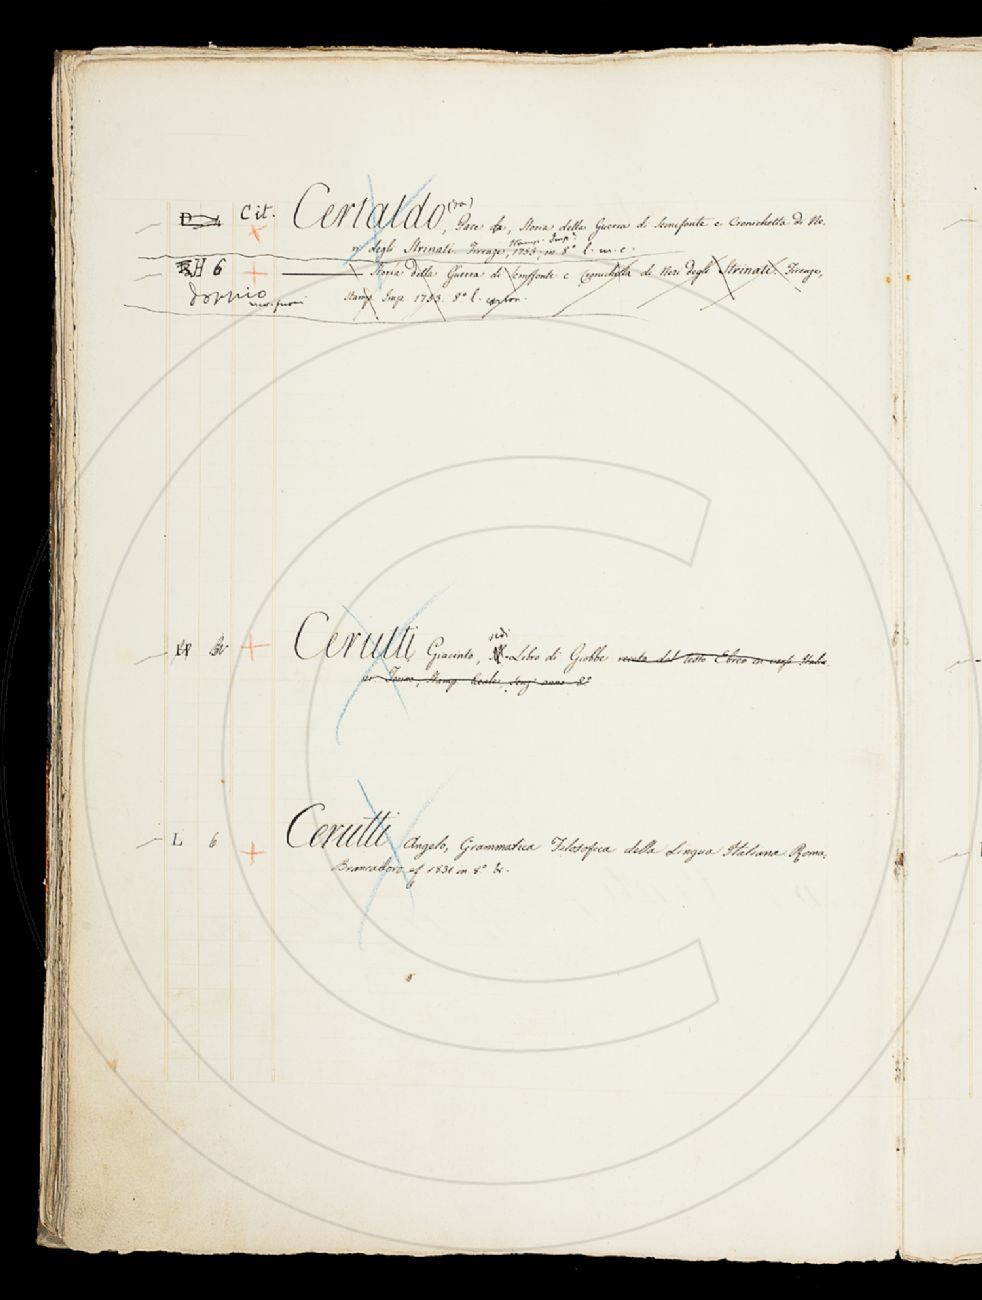 Cit. Certaldo (da), Pace da, Storia della Guerra di Semifonte e Cronichetta di Ne-
ri degli Strinati. Firenze, Stamp. Imp.e 1753, in 8° l. m. c.
H 6 Storia della Guerra di Semiffonte e Cronichetta di Neri degli Strinati. Firenze,
Doppio Stamp. Imp. 1753. 8° l.
Cerutti, Giacinto, vedi Libro di Giobbe recato dal testo Ebreo in versi Italia-
ni. Torino, Stamp. Reale, senz' anno 8°
L 6 Cerutti Angelo, Grammatica Filosofica della Lingua Italiana Roma,
Brancadoro 1831 in 8° br.